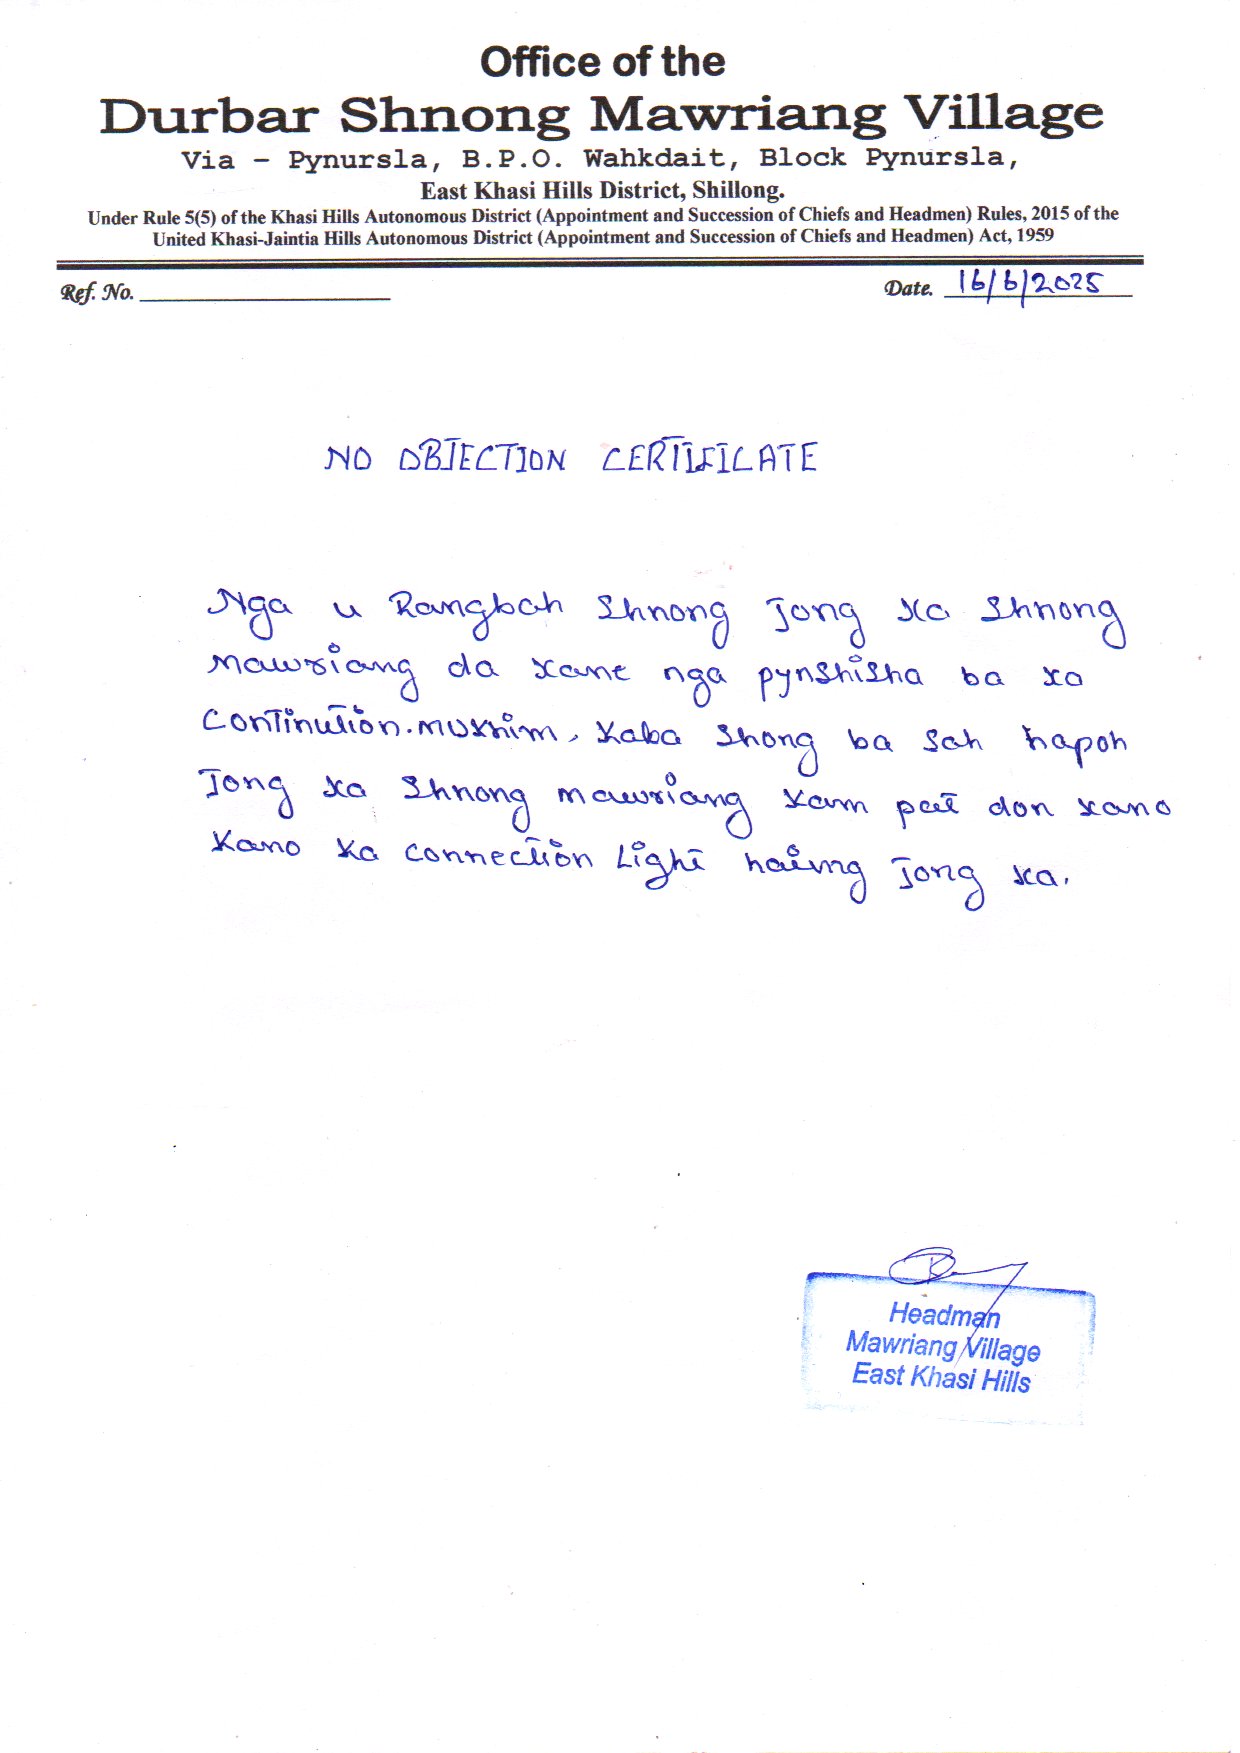 Office of the
Durbar Shnong Mawriang Village
Via - Pynursla, B.P.O. Wahkdait, Block Pynursla,
East Khasi Hills District, Shillong.
Under Rule 5(5) of the Khasi Hills Autonomous District (Appointment and Succession of Chiefs and Headmen) Rules, 2015 of the
United Khasi-Jaintia Hills Autonomous District (Appointment and Succession of Chiefs and Headmen) Act, 1959
Ref. No. Date. 16/6/2025
NO OBJECTION CERTIFICATE
Nga u Rangbah Shnong jong ka Shnong
Mawriang da kane nga pynshisha ba ka
Continution. Mukhim, kaba shong ba sah hapoh
Jong ka Shnong mawriang kam pat don kano
Kano ka connection Light haiing jong ka.
Headman
Mawriang Village
East Khasi Hills